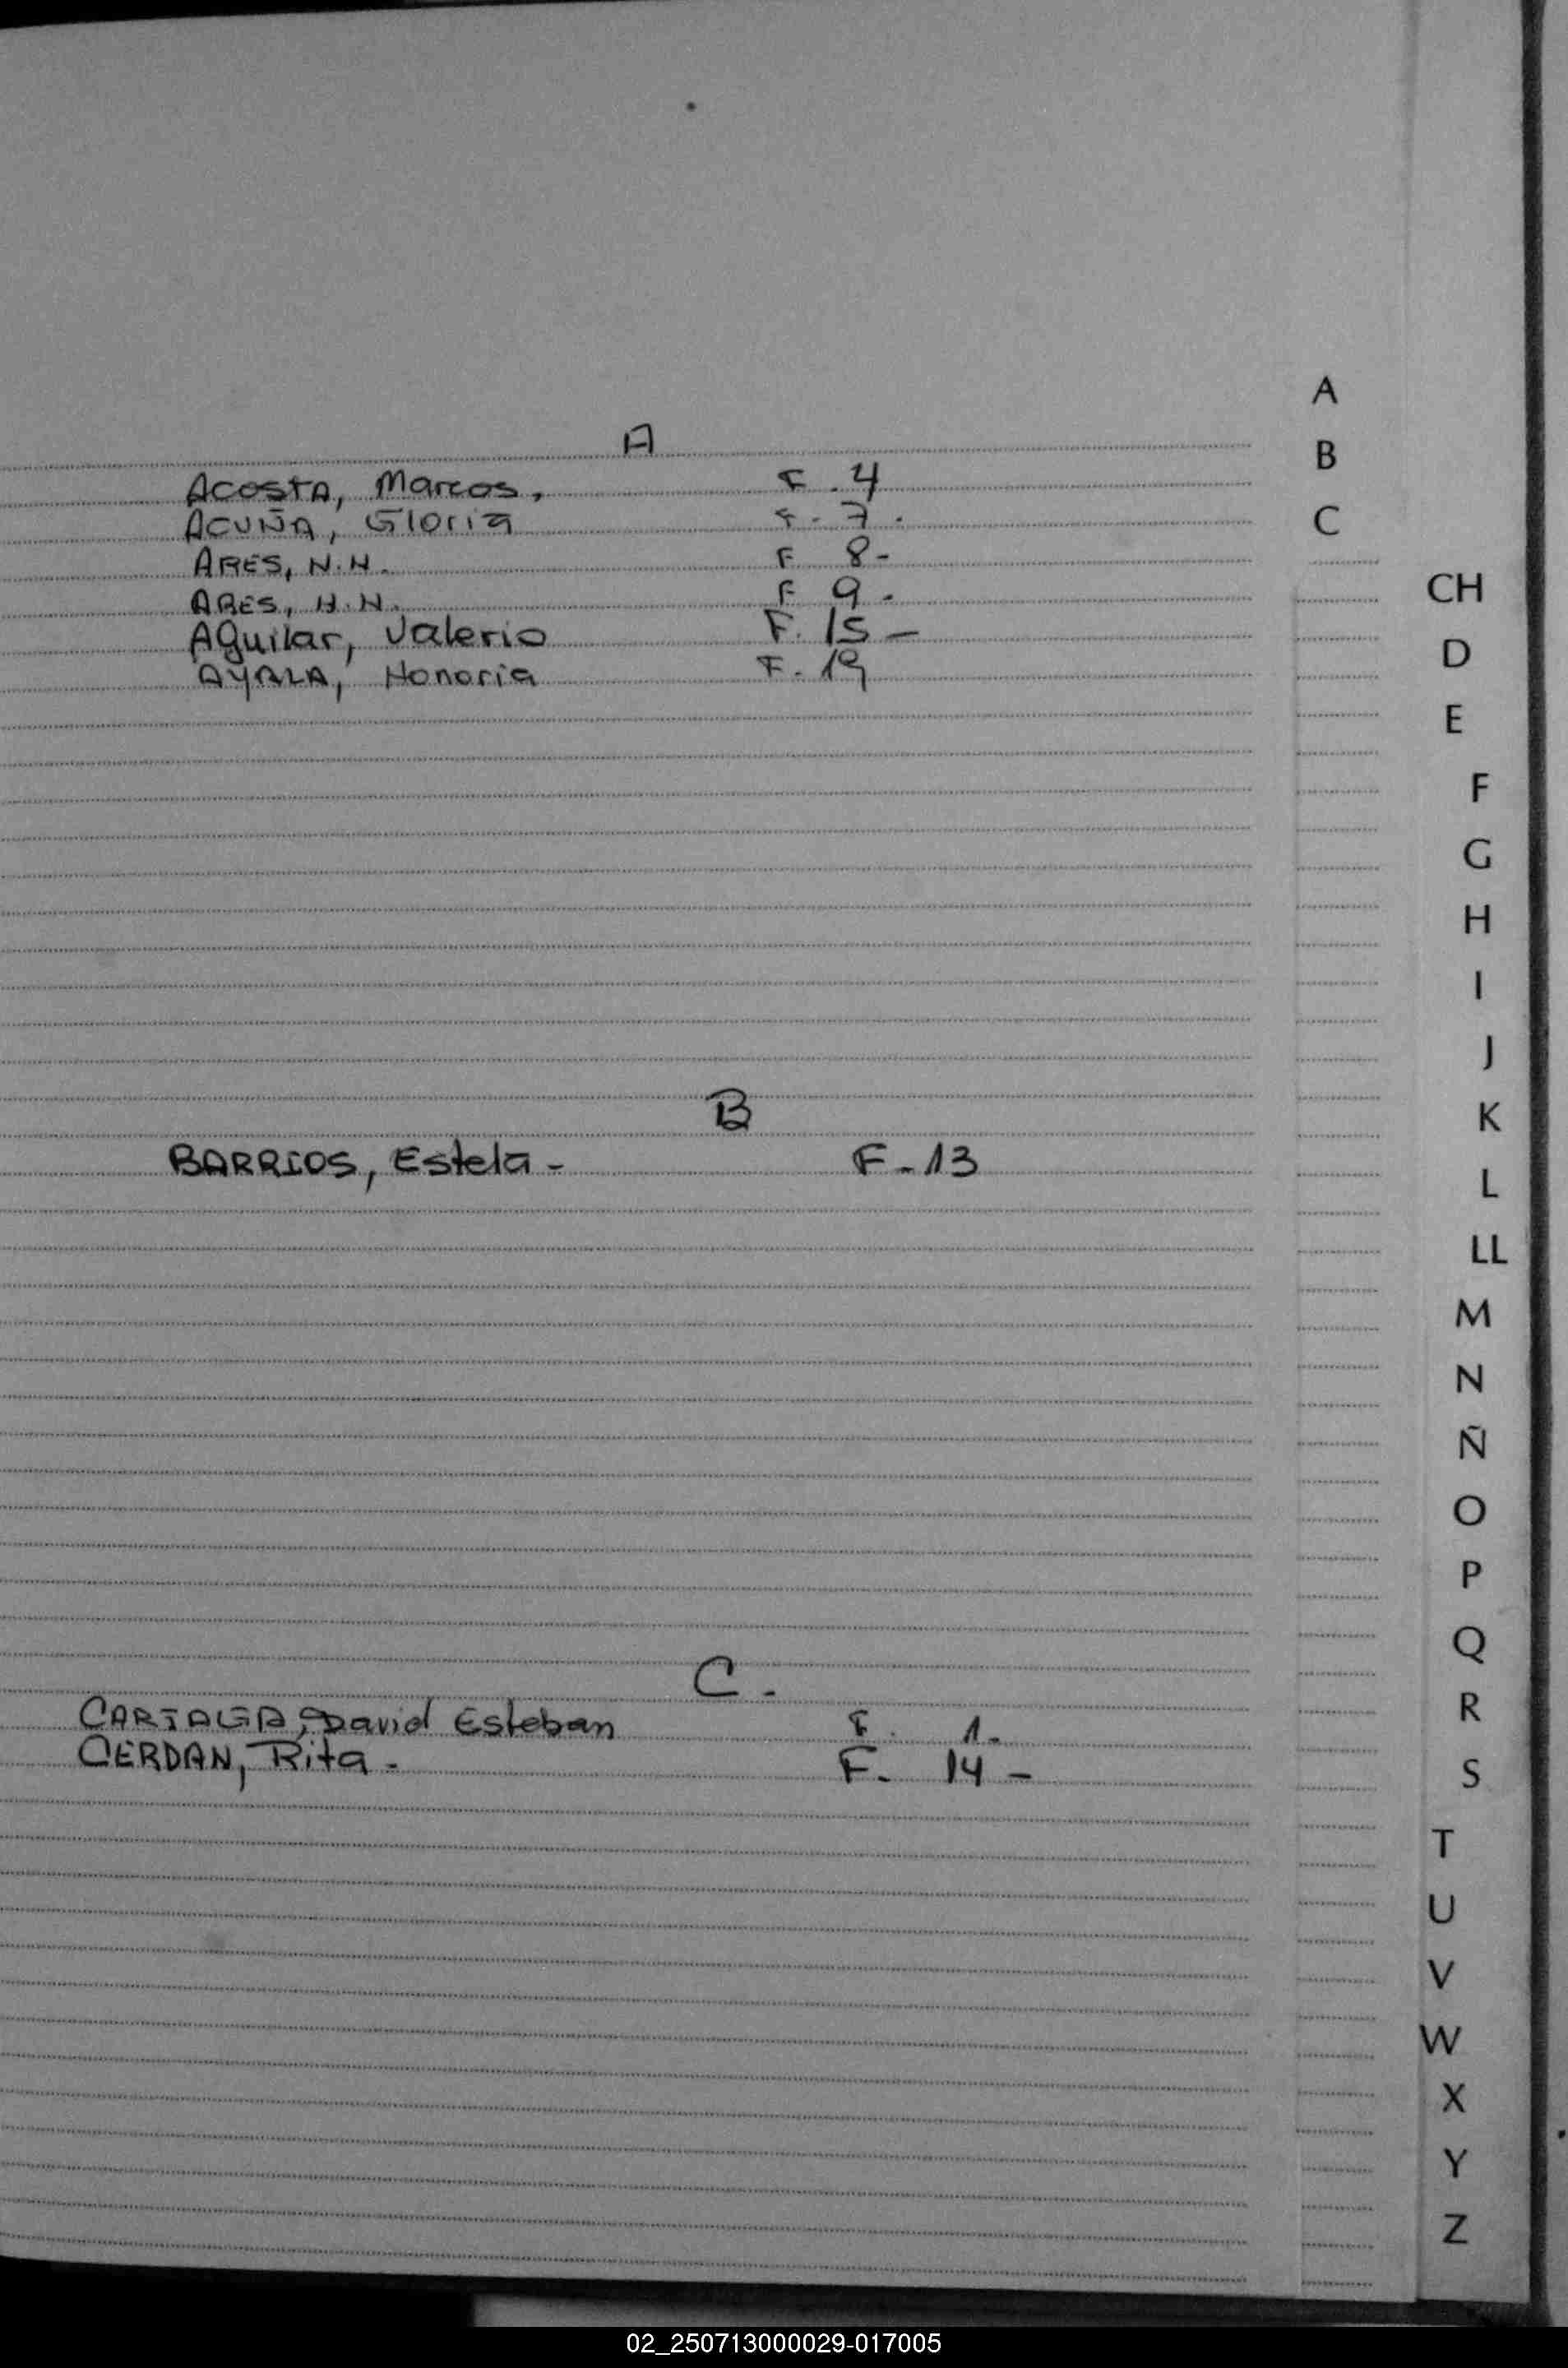 A
Acosta, Marcos, F. 4
ACUÑA, Gloria F. 7.
ARES, N.N. F 8-
ARES, N.N. F 9.
Aguilar, Valerio F. 15 -
AYALA, Honoria F. 19
B
BARRIOS, Estela - F-13
C.
David Esteban F. 1.
CERDAN, Rita - F. 14 -
A
B
C
CH
D
E
F
G
H
I
J
K
L
LL
M
N
Ñ
O
P
Q
R
S
T
U
V
W
X
Y
Z
02_250713000029-017005